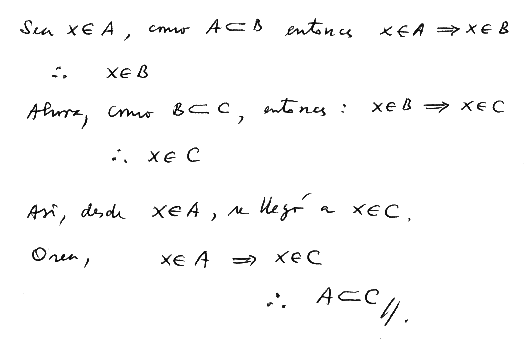 Sea x∈A, como A⊂B entonces x∈A ⇒ x∈B
∴ x∈B
Ahora, como B⊂C, entonces: x∈B ⇒ x∈C
∴ x∈C
Así, desde x∈A, se llegó a x∈C.
O sea, x∈A ⇒ x∈C
∴ A⊂C //.